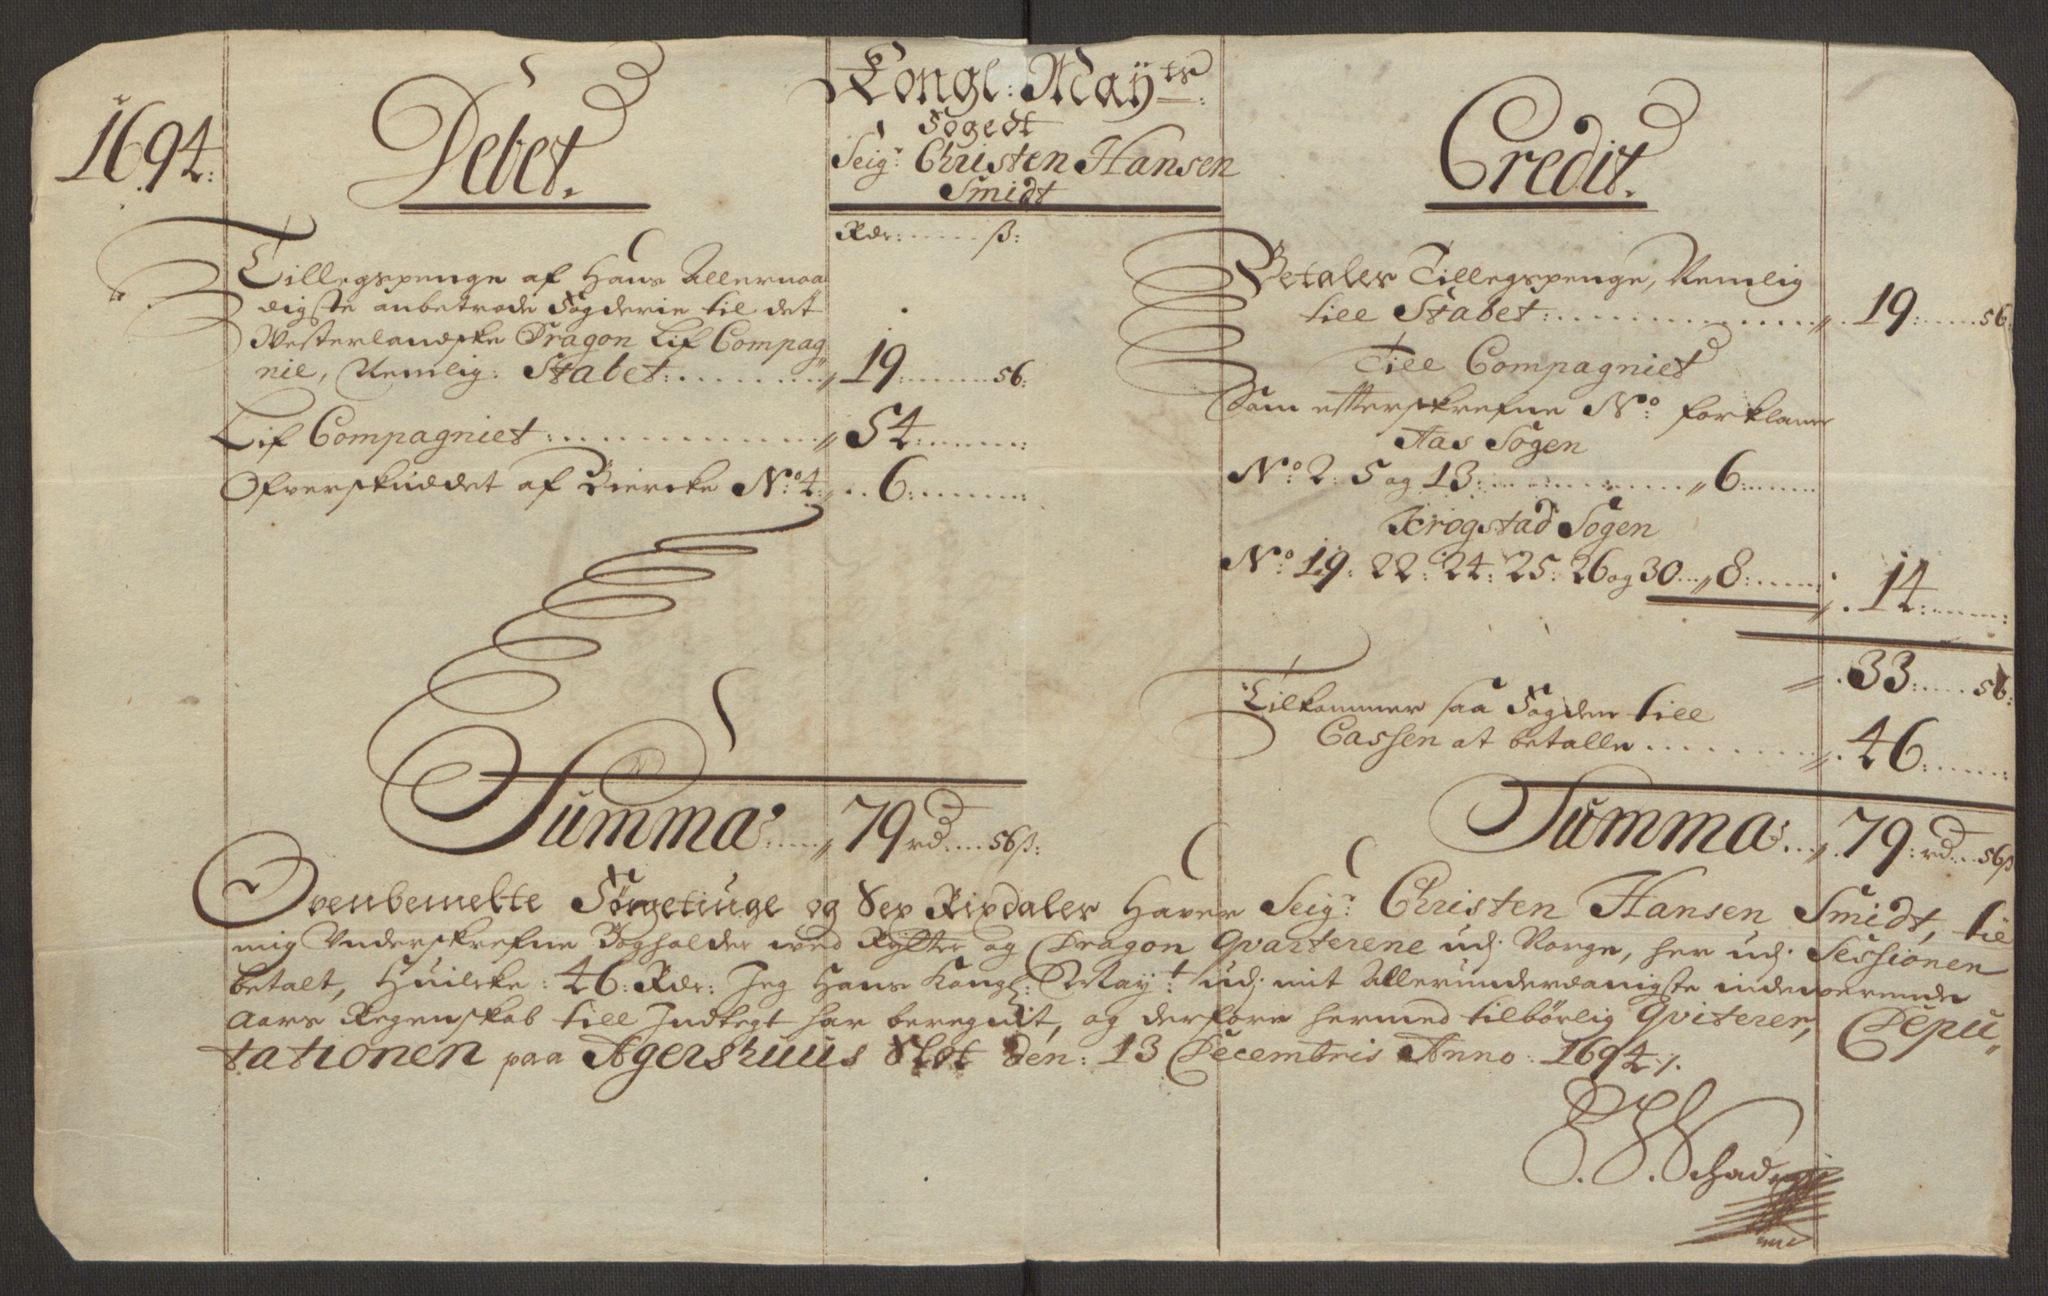 1694.
Debet.
Kongl: Mayts
Fogedt
Seigr. Christen Hansen
Smidt
Rdr: ß:
Tillegspenge af Hans Allernaa
digste anbetrode Fogderie til det
Westerlandske Dragon Lif Compag
nie, Nemlig: Stabet: 19 56:
Lif Compagniet: 54:
Ofverskuddet af Biercke No. 4: 6:
Summa: 79 rd 56 ß:
Credit.
Betaler Tillegspenge, Nemlig
till Stabet: 19: 56:
Till Compagniet
Som efterskrefne No: forklarer
Aas Sogen
No: 2: 5 og 13: 6:
Krogstad Sogen
No: 19: 22: 24: 25: 26 og 30 8: 14:
33: 56:
Tilkommer saa Fogden till
Cassen at betalle 46:
Summa: 79: rd 56 ß
Ovenbemelte Sex Rixdaler Haver Seigr: Christen Hansen Smidt, til
mig Underskrefne Bogholder ved Rytter og Dragon Qvarterene udj Norge, her udj Sessionen
betalt, Huilcke: 46: Rdr: Jeg Hans Kongl: Mayt: udj mit Allerunderdanigste indeverende
Aars Regenskab till Indtegt har beregnit, og derfore hermed tilbørlig Qviterer, Depu„
tationen paa Agershuus Slot den: 13 Decembris Anno: 1694 ⁒.